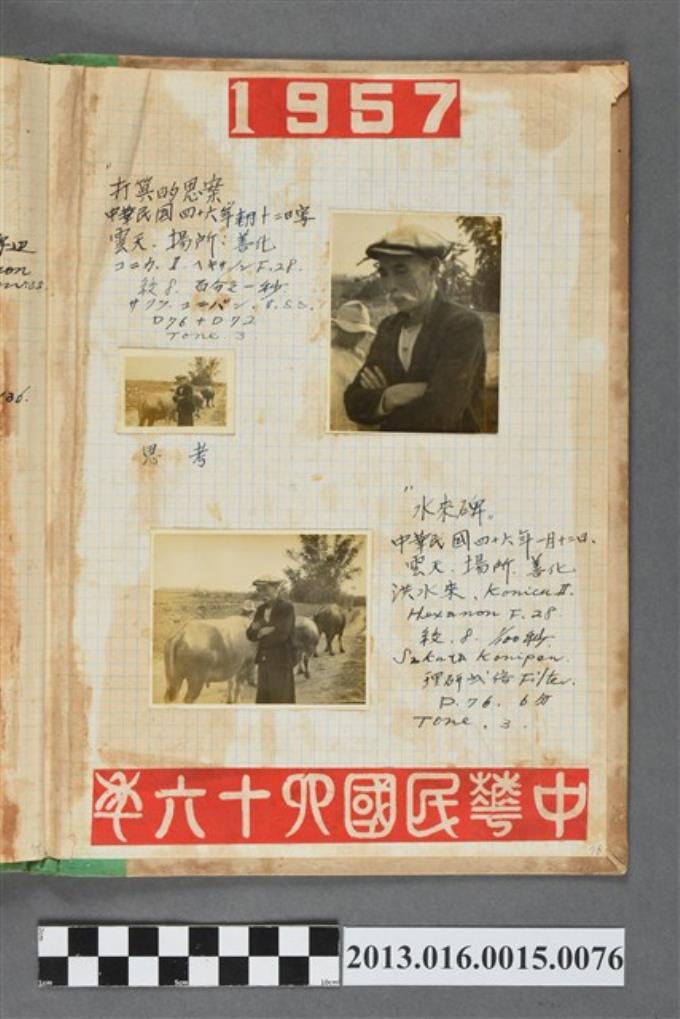 1957
"打算的思案"
中華民國四十六年一月十二日寫
雲天. 場所: 善化
コニカ. Ⅱ. ヘキサノン F. 28.
絞 8. 百分之一秒
サクラ. コニパン. S.S.S.
D76 + D72
Tone. 3.
思 考
"水來碑"
中華民國四十六年一月十二日.
雲天. 場所. 善化
洪水來. Konica Ⅱ.
Hexanon F. 28
絞. 8. 1/100秒.
Sakura Konipan.
理研 倍 Filter.
D. 76. 6分
Tone. 3.
中華民國四十六年
78
2013.016.0015.0076
1cm 5cm 10cm